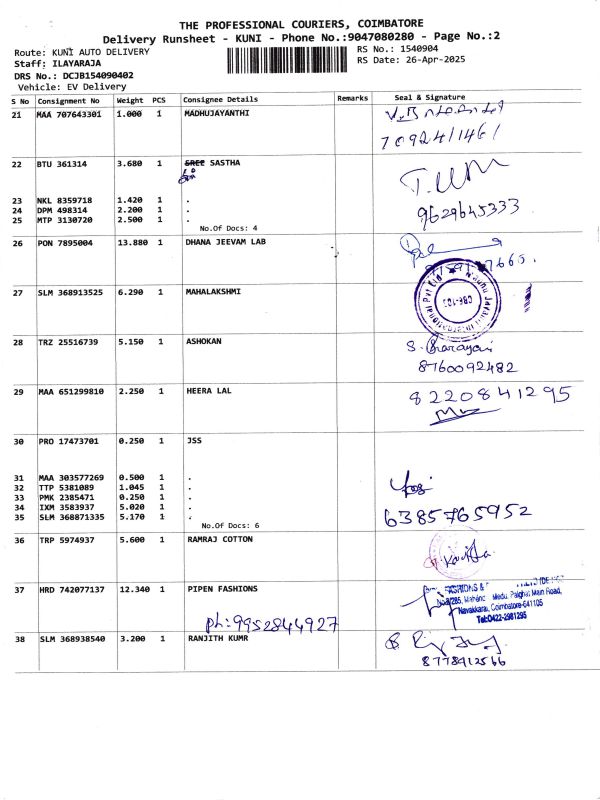 THE PROFESSIONAL COURIERS, COIMBATORE
Delivery Runsheet - KUNI - Phone No.:9047080280 - Page No.:2
Route: KUNI AUTO DELIVERY
RS No.: 1540904
Staff: ILAYARAJA
RS Date: 26-Apr-2025
DRS No.: DCJB154090402
Vehicle: EV Delivery
S No Consignment No Weight PCS Consignee Details Remarks Seal & Signature
21 MAA 707643301 1.000 1 MADHUJAYANTHI
7092411461
22 BTU 361314 3.680 1 SREE SASTHA
T.
23 NKL 8359718 1.420 1 .
24 DPM 498314 2.200 1 .
9629645333
25 MTP 3130720 2.500 1 .
No.Of Docs: 4
26 PON 7895004 13.880 1 DHANA JEEVAM LAB
7665.
27 SLM 368913525 6.290 1 MAHALAKSHMI
Pvt Ltd
CBE-103
28 TRZ 25516739 5.150 1 ASHOKAN
S.
8760092482
29 MAA 651299810 2.250 1 HEERA LAL
8220841295
30 PRO 17473701 0.250 1 JSS
31 MAA 303577269 0.500 1 .
32 TTP 5381089 1.045 1 .
33 PMK 2385471 0.250 1 .
34 IXM 3583937 5.020 1 .
35 SLM 368871335 5.170 1 .
6385765952
No.Of Docs: 6
36 TRP 5974937 5.600 1 RAMRAJ COTTON
37 HRD 742077137 12.340 1 PIPEN FASHIONS
FASHIONS &
Palghat Main Road,
Navakkarai, Coimbatore-641105
Tel:0422-2981295
Ph:9952844927
38 SLM 368938540 3.200 1 RANJITH KUMR
8778412566